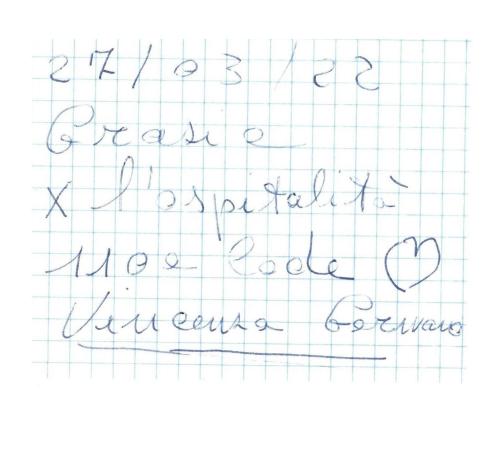 27/03/22
Grazie
x l'ospitalità
110 e lode ♡
Vincenza